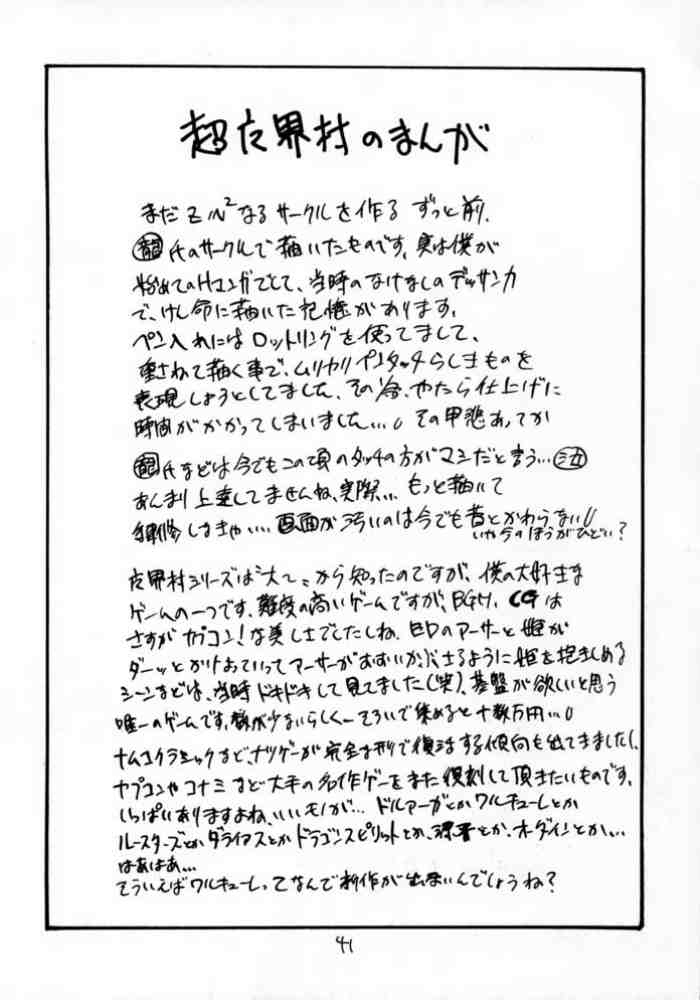 超魔界村のまんが
まだZN²なるサークルを作る ずっと前、
氏のサークルで描いたものです、実は僕が
初めてのHマンガでして、当時のなけなしのデッサン力
で、けん命に描いた記憶があります。
ペン入れにはロットリングを使ってまして、
重ねて描く事で、ムリヤリペンタッチらしきものを
表現しようとしてました、その分、やたら仕上げに
時間がかかってしまいました…。その甲斐あってか
氏などは今でもこの頃のタッチの方がマシだと言う…
あんまり上達してませんね、実際… もっと描いて
修しなきゃ…。画面が汚いのは今でも昔とかわらない
いや今のほうがひどい?
魔界村シリーズは"大〜"から知ったのですが、僕の大好きな
ゲームの一つです。難度の高いゲームですが、BGM、CGは
さすがカプコン!な美しさでしたしね、EDのアーサーと姫が
ダーッとかけよっていってアーサーが おおいかぶさるように姫を抱きしめる
シーンなどは、当時ドキドキして見てました(笑)、基盤が欲しいと思う
唯一のゲームです。数が少ないらしくそろいで集めると十数万円…
ナムコクラシックなど、ナツゲーが完全な形で復活する傾向も出てきましたし、
カプコンやコナミなど大手の名作ゲーをまた復刻して頂きたいものです。
いっぱいありますよね、いいモノが… ドルアーガとかワルキューレとか
ルースターズとかダライアスとかドラゴンスピリットとか、源平とか、オーダインとか…
はあはあ…
そういえばワルキューレってなんで新作が出ないんでしょうね?
41